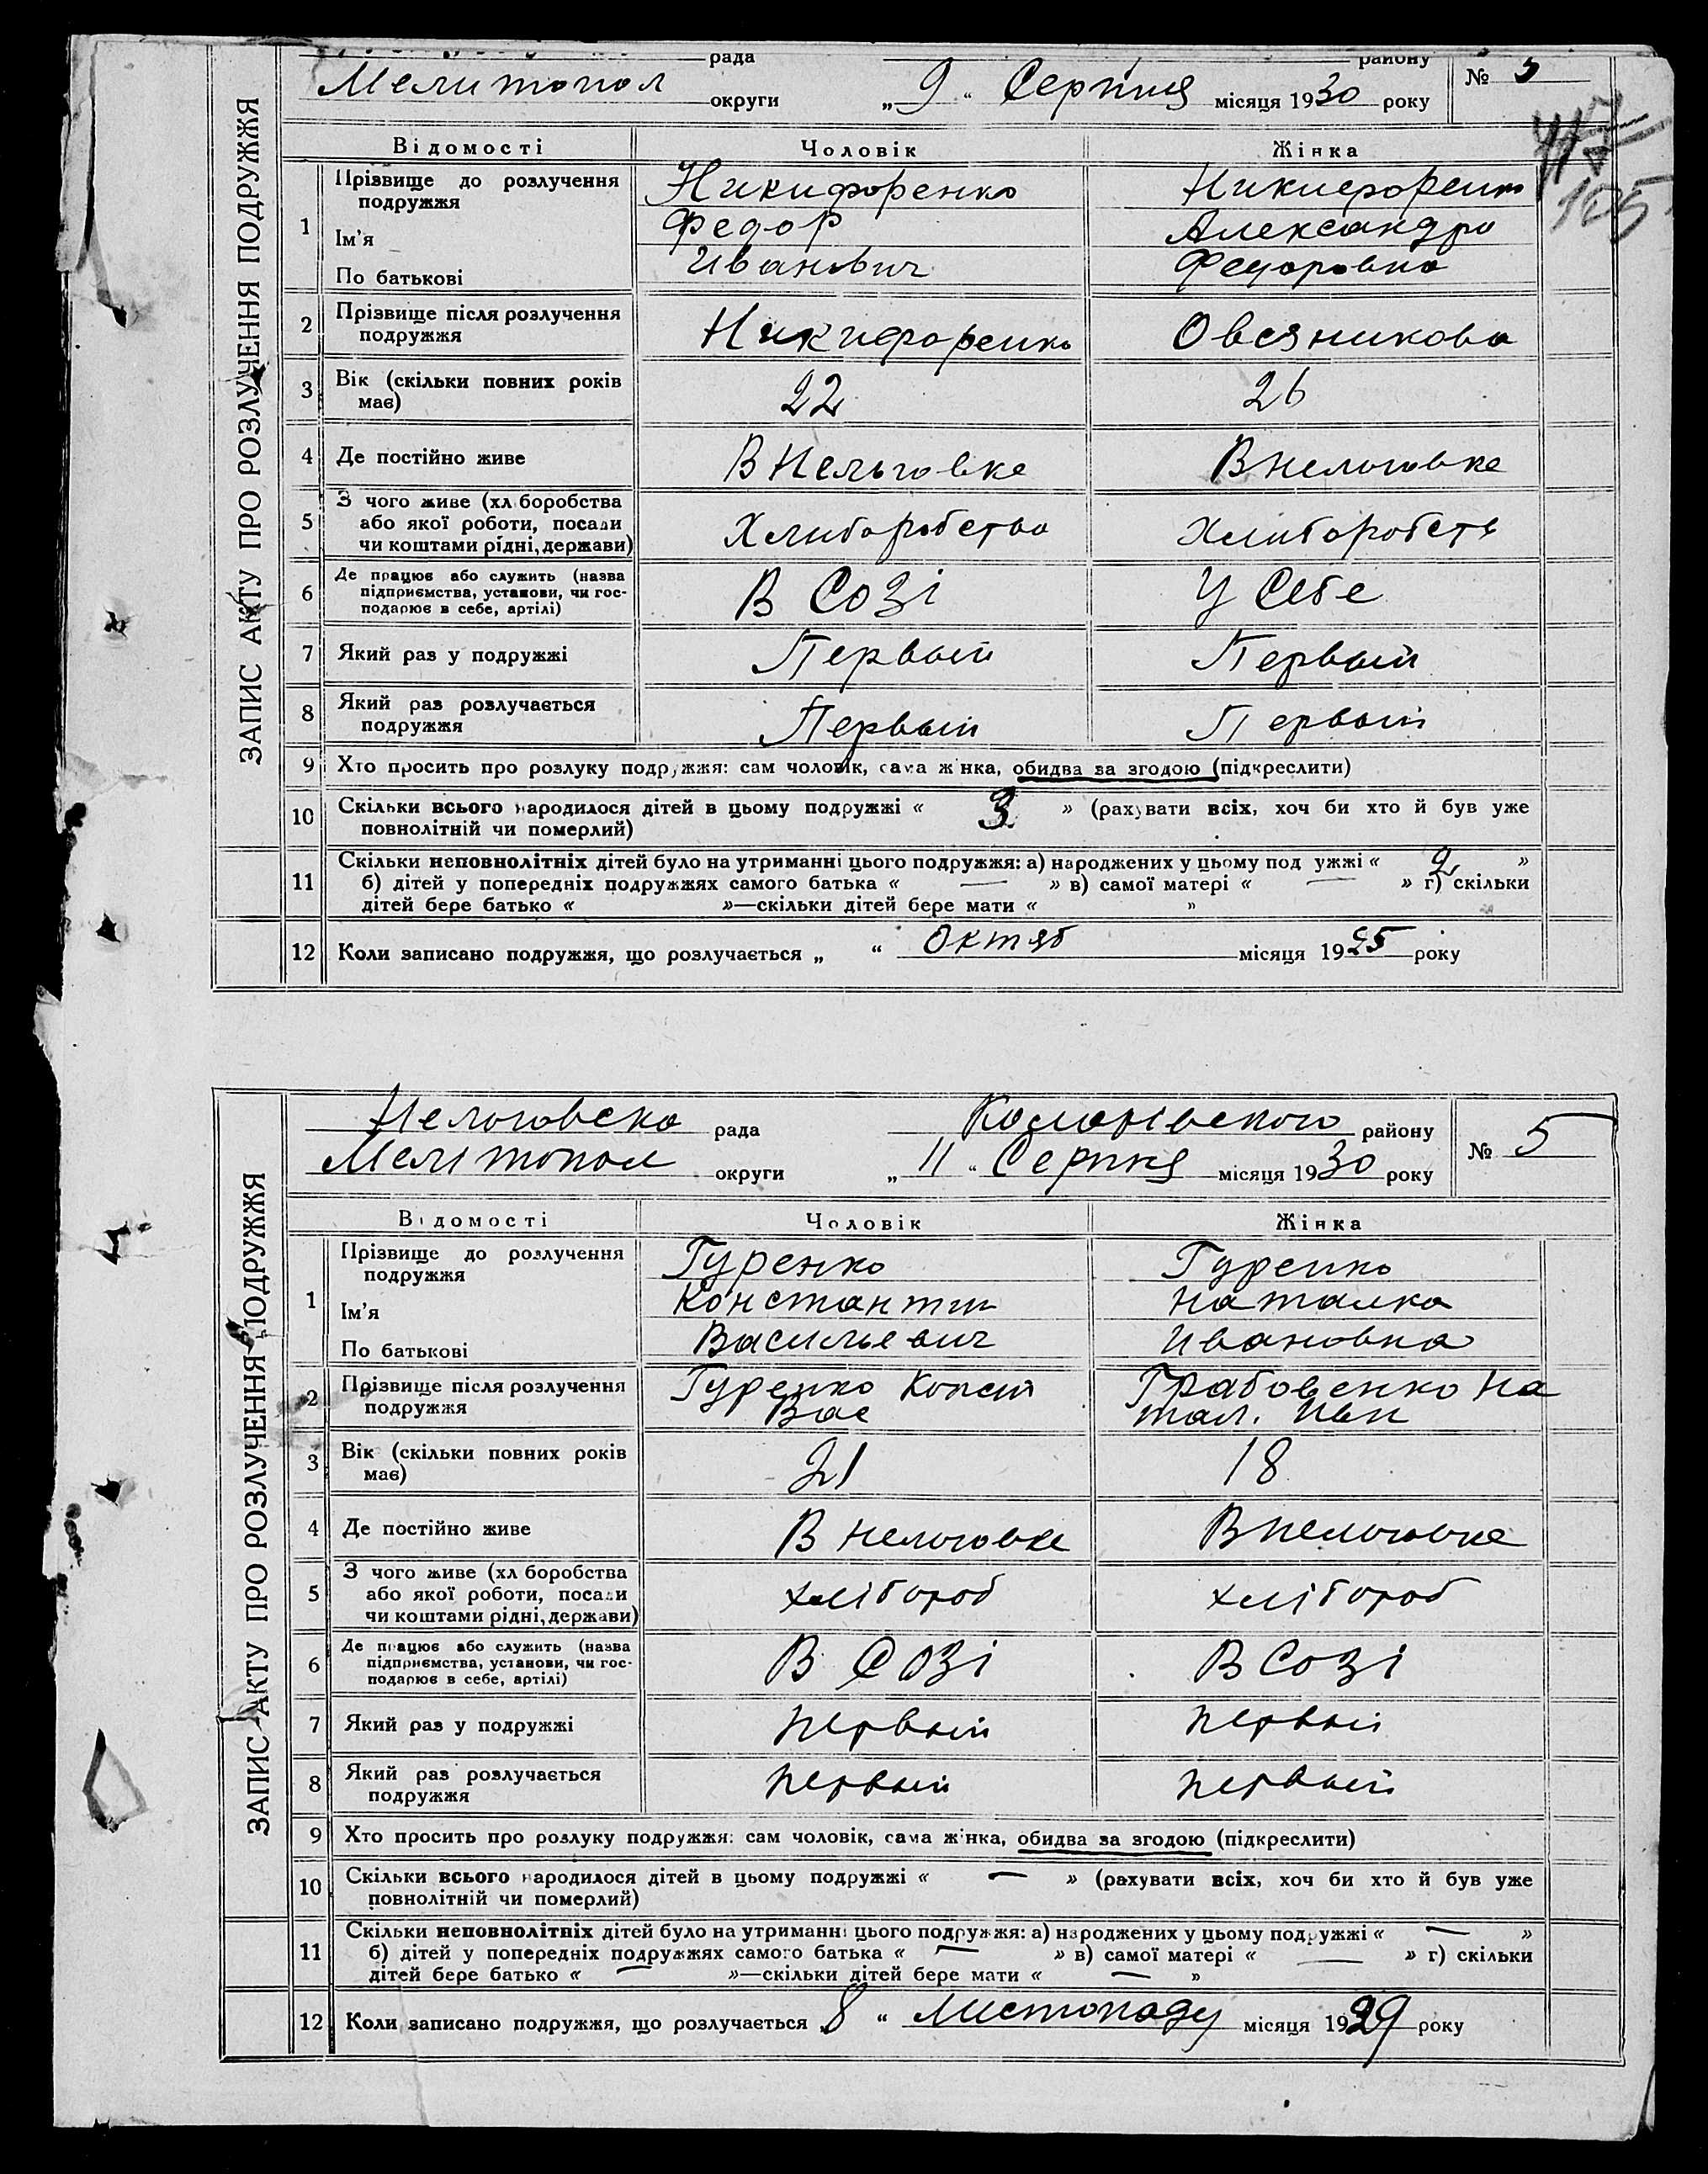 ЗАПИС АКТУ ПРО РОЗЛУЧЕННЯ ПОДРУЖЖЯ
рада району
Мелитопол округи „ 9 “ Серпня місяця 1930 року № 5
165
Відомості Чоловік Жінка
1 Прізвище до розлучення подружжя Никифоренко Никифоренко
Ім'я Федор Александра
По батькові Иванович Федоровна
2 Прізвище після розлучення подружжя Никифоренко Овсяникова
3 Вік (скільки повних років має) 22 26
4 Де постійно живе В Нельговке В нельговке
5 З чого живе (хліборобства або якої роботи, посади чи коштами рідні, держави) Хлиборобство Хлиборобств
6 Де працює або служить (назва підприємства, установи, чи господарює в себе, артілі) В Созі У Себе
7 Який раз у подружжі Первый Первый
8 Який раз розлучається подружжя Первый Первый
9 Хто просить про розлуку подружжя: сам чоловік, сама жінка, обидва за згодою (підкреслити)
10 Скільки всього народилося дітей в цьому подружжі « 3 » (рахувати всіх, хоч би хто й був уже
повнолітній чи померлий)
11 Скільки неповнолітніх дітей було на утриманні цього подружжя: а) народжених у цьому подружжі « 2 »
б) дітей у попередніх подружжях самого батька « — » в) самої матері « — » г) скільки
дітей бере батько « »—скільки дітей бере мати « »
12 Коли записано подружжя, що розлучається „ “ Октяб місяця 1925 року
ЗАПИС АКТУ ПРО РОЗЛУЧЕННЯ ПОДРУЖЖЯ
Нельговска рада району
Мелітопол округи „ 11 “ Серпня місяця 1930 року № 5
Відомості Чоловік Жінка
1 Прізвище до розлучення подружжя Гуренко Гуренко
Ім'я Константин Наталка
По батькові Васильевич Ивановна
2 Прізвище після розлучення подружжя Гуренко Конст Грабовенко На
Вас тал. Ивн
3 Вік (скільки повних років має) 21 18
4 Де постійно живе В нельговке В нельговке
5 З чого живе (хліборобства або якої роботи, посади чи коштами рідні, держави) хлібороб хлібороб
6 Де працює або служить (назва підприємства, установи, чи господарює в себе, артілі) В Созі В Созі
7 Який раз у подружжі первый первый
8 Який раз розлучається подружжя первый первый
9 Хто просить про розлуку подружжя: сам чоловік, сама жінка, обидва за згодою (підкреслити)
10 Скільки всього народилося дітей в цьому подружжі « — » (рахувати всіх, хоч би хто й був уже
повнолітній чи померлий)
11 Скільки неповнолітніх дітей було на утриманні цього подружжя: а) народжених у цьому подружжі « — »
б) дітей у попередніх подружжях самого батька « — » в) самої матері « — » г) скільки
дітей бере батько « — »—скільки дітей бере мати « — »
12 Коли записано подружжя, що розлучається „ 8 “ Листопаду місяця 1929 року